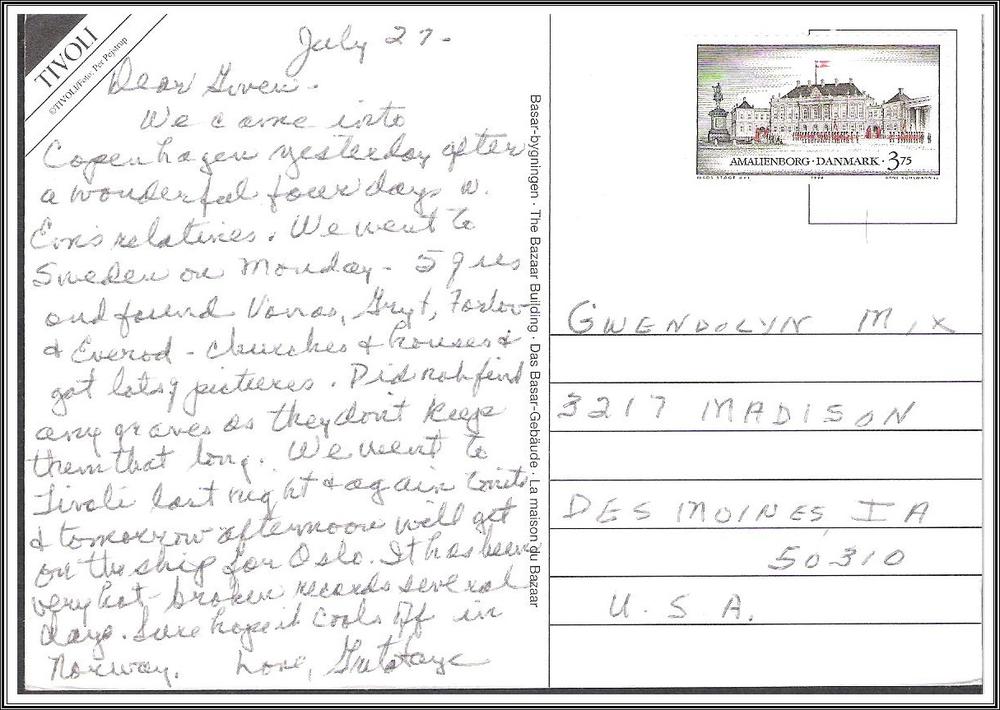 TIVOLI
©TIVOLI/Foto: Per Pejstrup
July 27-
Dear Gwen-
We came into
Copenhagen yesterday after
a wonderful four days w.
relatives. We went to
Sweden on Monday - 5 of us
and found Vanas, Gryt,
& Everod - churches & houses &
got lots of pictures. Did not find
any graves as they don't keep
them that long. We went to
Tivoli last night & again
& tomorrow afternoon will get
on the ship for Oslo. It has been
very hot - broken records several
days. Sure hope it cools off in
Norway. Love,
Basar-bygningen · The Bazaar Building · Das Basar-Gebäude · La maison du Bazaar
AMALIENBORG · DANMARK · 3.75
GWENDOLYN MIX
3217 MADISON
DES MOINES, IA
50310
U.S.A.